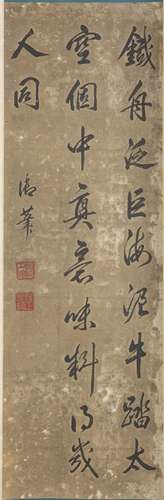 鐵舟泛巨海泥牛踏太
空個中真意味料得幾
人同
御筆